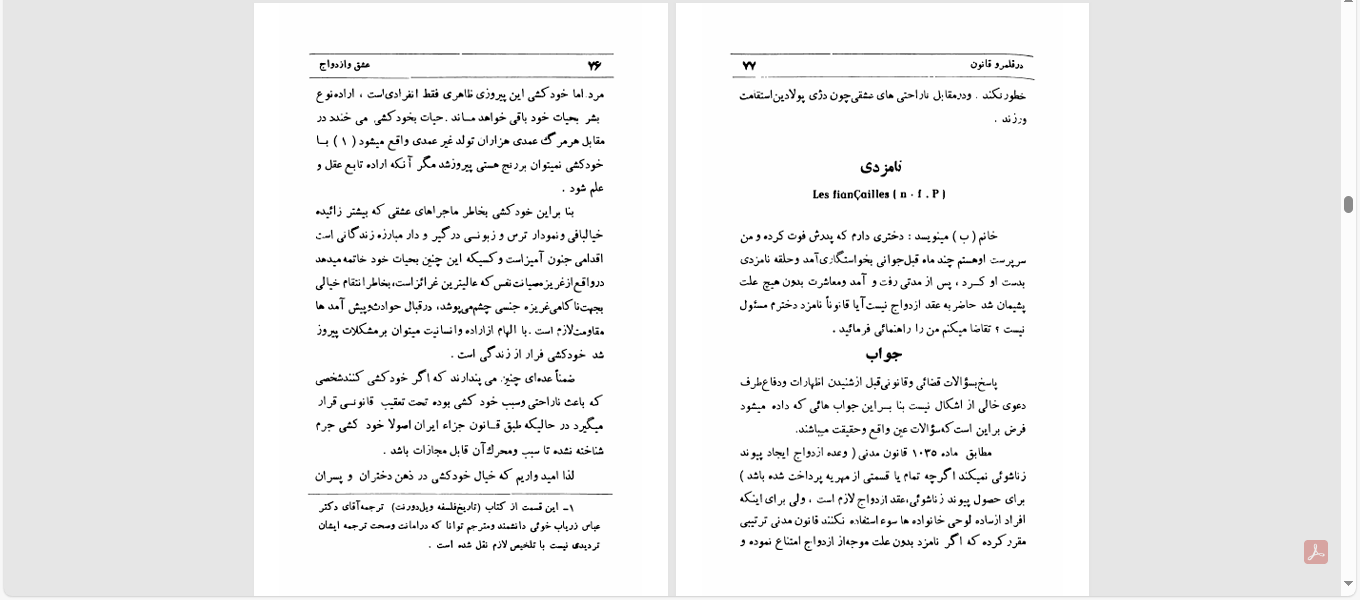 ۷۶ عشق وازدواج
مرد.اما خودکشی این پیروزی ظاهری فقط انفرادی‌است ، اراده نوع
بشر بحیات خود باقی خواهد مـاند .حیات بخودکشی می خندد در
مقابل هرمرگ عمدی هزاران تولد غیر عمدی واقع میشود ( ۱ ) بـا
خودکشی نمیتوان بررنج هستی پیروزشد مگر آنکه اراده تابع عقل و
علم شود .
بنا براین خودکشی بخاطر ماجراهای عشقی که بیشتر زائیده
خیالبافی ونمودار ترس و زبونـی درگیر و دار مبارزه زندگانی است
اقدامی جنون آمیزاست وکسیکه این چنین بحیات خود خاتمه میدهد
درواقع ازغریزه صیانت نفس که عالیترین غرائزاست،بخاطر انتقام خیالی
بجهت ناکامی غریزه جنسی چشم می‌پوشد، درقبال حوادث وپیش آمد ها
مقاومت لازم است .با الهام ازاراده وانسانیت میتوان برمشکلات پیروز
شد خودکشی فرار از زندگی است .
ضمناً عده‌ای چنین می پندارند که اگر خودکشی کنندشخصی
که باعث ناراحتی وسبب خود کشی بوده تحت تعقیب قانونـی قرار
میگیرد در حالیکه طبق قـانون جزاء ایران اصولا خود کشی جرم
شناخته نشده تا سبب ومحرك آن قابل مجازات باشد .
لذا امید واریم که خیال خودکشی در ذهن دختران و پسران
۱– این قسمت از کتاب (تاریخ فلسفه ویل‌دورنت) ترجمه آقای دکتر
عباس زریاب خوئی دانشمند ومترجم توانا که درامانت وصحت ترجمه ایشان
تردیدی نیست با تلخیص لازم نقل شده است .
درقلمرو قانون ۷۷
خطورنکند . ودرمقابل ناراحتی های عشقی چون دژی پولادین استقامت
ورزند .
نامزدی
Les fianÇailles ( n . f . P )
خانم ( ب ) مینویسد : دختری دارم که پدرش فوت کرده و من
سرپرست اوهستم چند ماه قبل جوانی بخواستگاری آمد وحلقه نامزدی
بدست او کـرد ، پس از مدتی رفت و آمد ومعاشرت بدون هیچ علت
پشیمان شد حاضر به عقد ازدواج نیست آیا قانوناً نامزد دخترم مسئول
نیست ؟ تقاضا میکنم من را راهنمائی فرمائید .
جواب
پاسخ بسؤالات قضائی وقانونی قبل ازشنیدن اظهارات ودفاع طرف
دعوی خالی از اشکال نیست بنا بـراین جواب هائی که داده میشود
فرض براین است که سؤالات عین واقع وحقیقت میباشند.
مطابق ماده ۱۰۳۵ قانون مدنی ( وعده ازدواج ایجاد پیوند
زناشوئی نمیکند اگرچه تمام یا قسمتی از مهریه پرداخت شده باشد )
برای حصول پیوند زناشوئی،عقد ازدواج لازم است ، ولی برای اینکه
افراد ازساده لوحی خانواده ها سوء استفاده نکنند قانون مدنی ترتیبی
مقررکرده که اگر نامزد بدون علت موجه از ازدواج امتناع نموده و